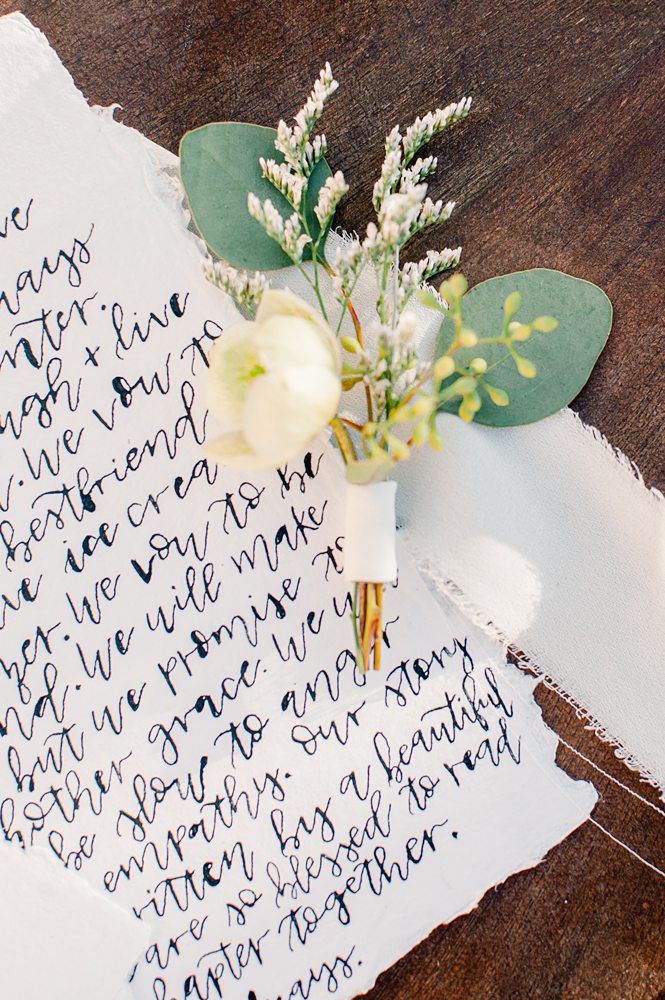 ve
ways
nter.
ugh + live
. We vow to
bestfriend
ve ice crea
er. We vow to be
nd. We will make
but we promise to
other grace. We w
be slow to anger
empathy. Our story
itten by a beautiful
are so blessed to read
hapter together.
ways.